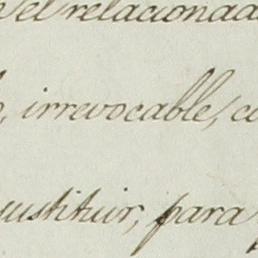 el relacionad
, irrevocable, c
ustituir, para